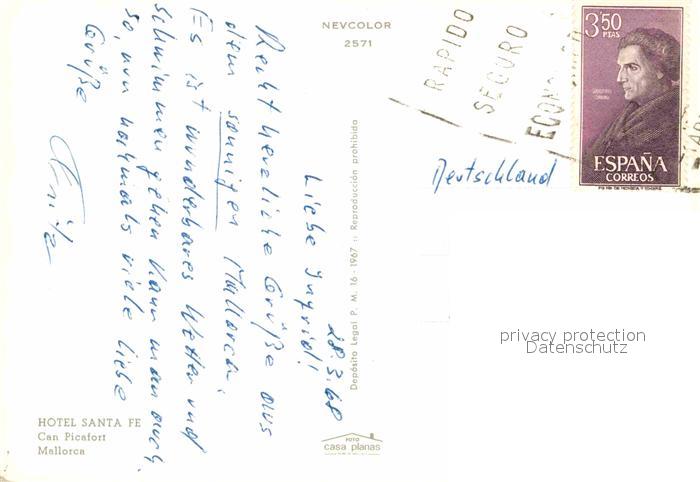 NEVCOLOR
2571
RAPIDO
SEGURO
3'50
PTAS
ESPAÑA
CORREOS
Deutschland
28.3.68
Liebe Ingrid!
Recht herzliche Grüße aus
dem sonnigen Mallorca.
Es ist wunderbares Wetter und
schwimmen gehen kann man auch.
So, nun nochmals viele liebe
Grüße
Anita
Depósito Legal P. M. 16 - 1967 :: Reproducción prohibida
privacy protection
Datenschutz
HOTEL SANTA FE
Can Picafort
Mallorca
FOTO
casa planas